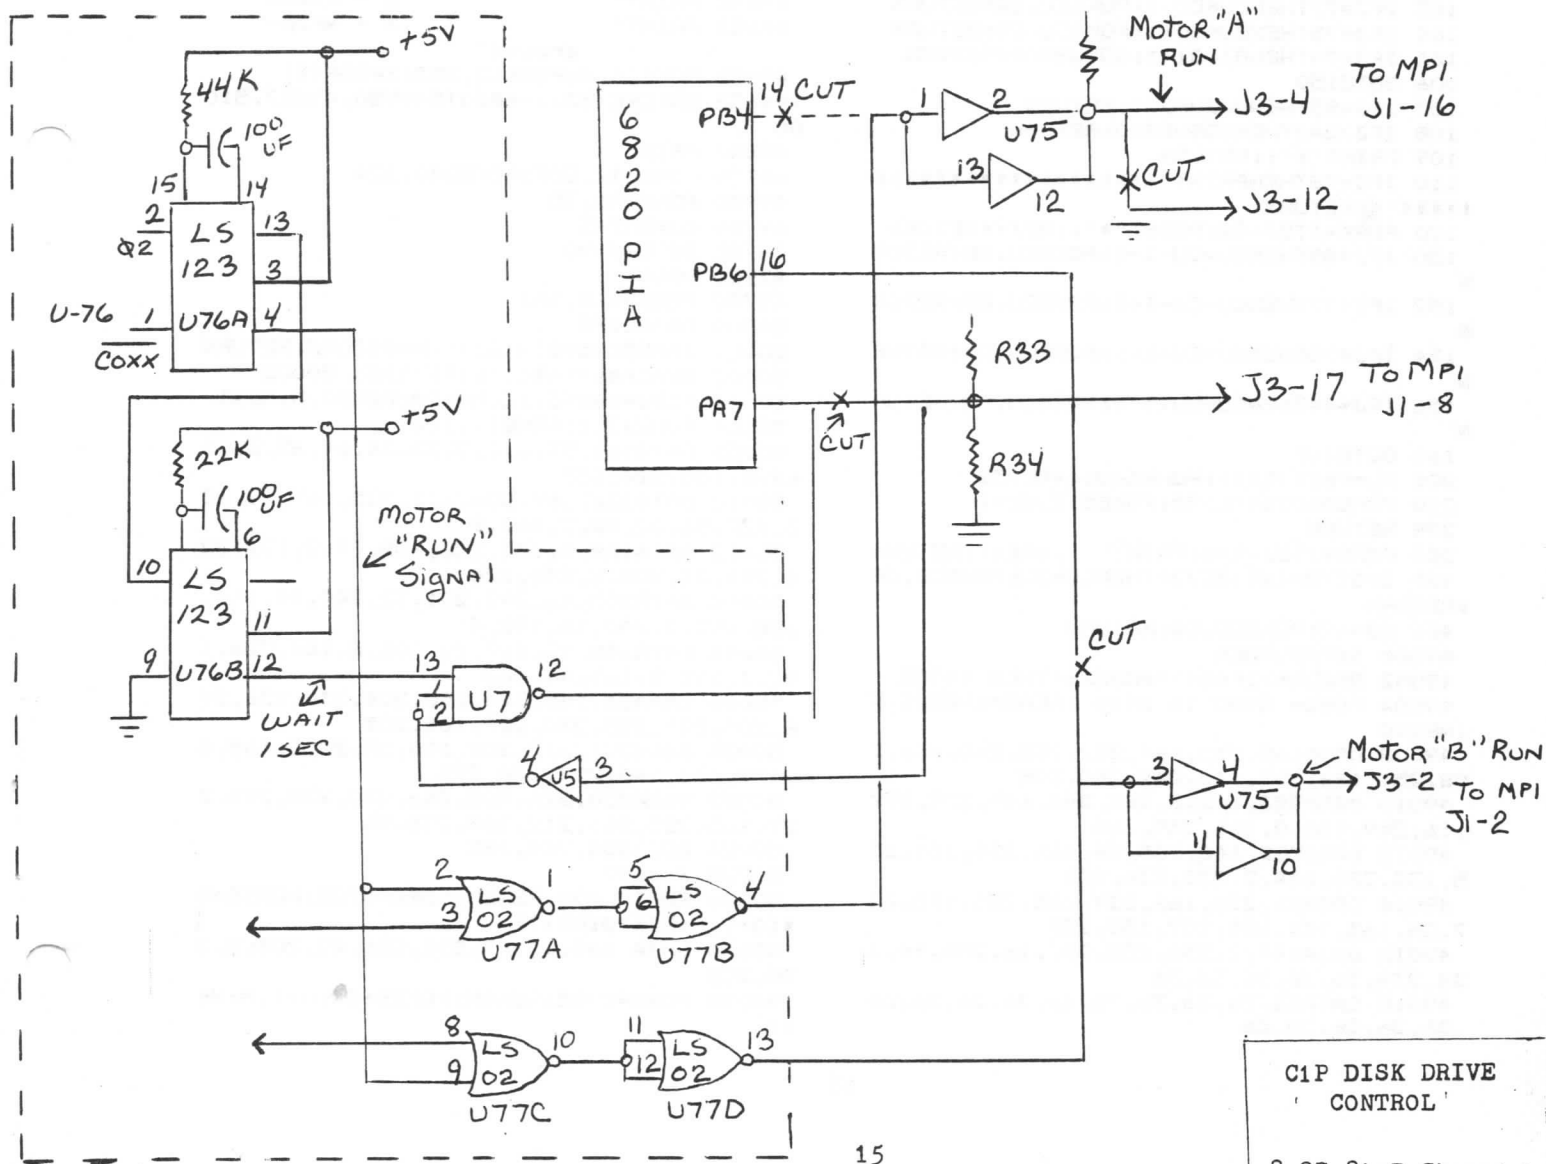 +5V
44K
100
UF
15
14
2
Φ2
LS
123
13
3
U-76
1
U76A
4
C0XX
+5V
22K
100
UF
6
10
LS
123
11
9
U76B
12
WAIT
1 SEC
MOTOR
"RUN"
Signal
13
1
2
U7
12
4
U5
3
2
3
LS
02
1
U77A
5
6
LS
02
4
U77B
8
9
LS
02
10
U77C
11
12
LS
02
13
U77D
6820 PIA
PB4
14
CUT
PB6
16
PA7
CUT
R33
R34
1
2
U75
13
12
MOTOR "A"
RUN
J3-4
TO MPI
J1-16
CUT
J3-12
J3-17 TO MPI
J1-8
CUT
3
4
U75
11
10
MOTOR "B" RUN
J3-2
TO MPI
J1-2
C1P DISK DRIVE
CONTROL
15